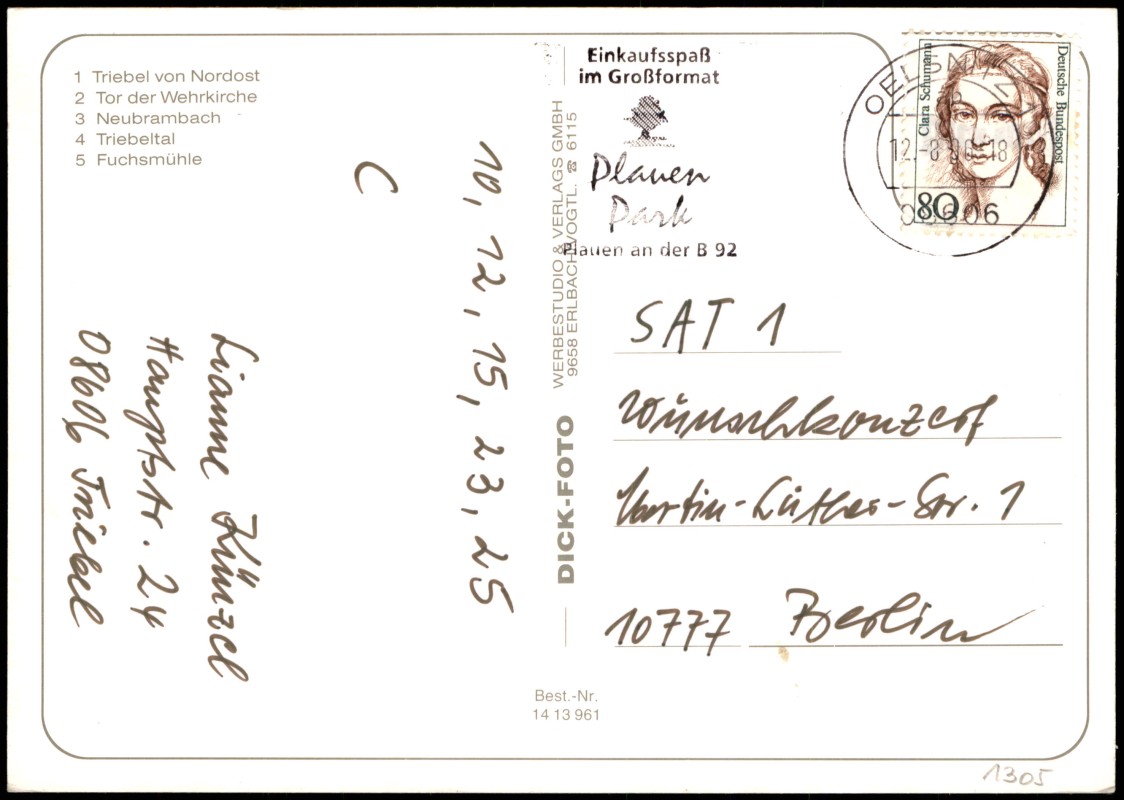 1 Triebel von Nordost
2 Tor der Wehrkirche
3 Neubrambach
4 Triebeltal
5 Fuchsmühle
C
10, 12, 15, 23, 25
Lianne Künzel
Hauptstr. 24
08606 Triebel
WERBESTUDIO & VERLAGS GMBH
9658 ERLBACH/VOGTL. ☎ 6115
DICK-FOTO
Best.-Nr.
14 13 961
Einkaufsspaß
im Großformat
Plauen
Park
Plauen an der B 92
Clara Schumann
Deutsche Bundespost
80
OELSNITZ
12.-8. 18
08606
SAT 1
Wunschkonzert
Martin-Luther-Str. 1
10777 Berlin
1305